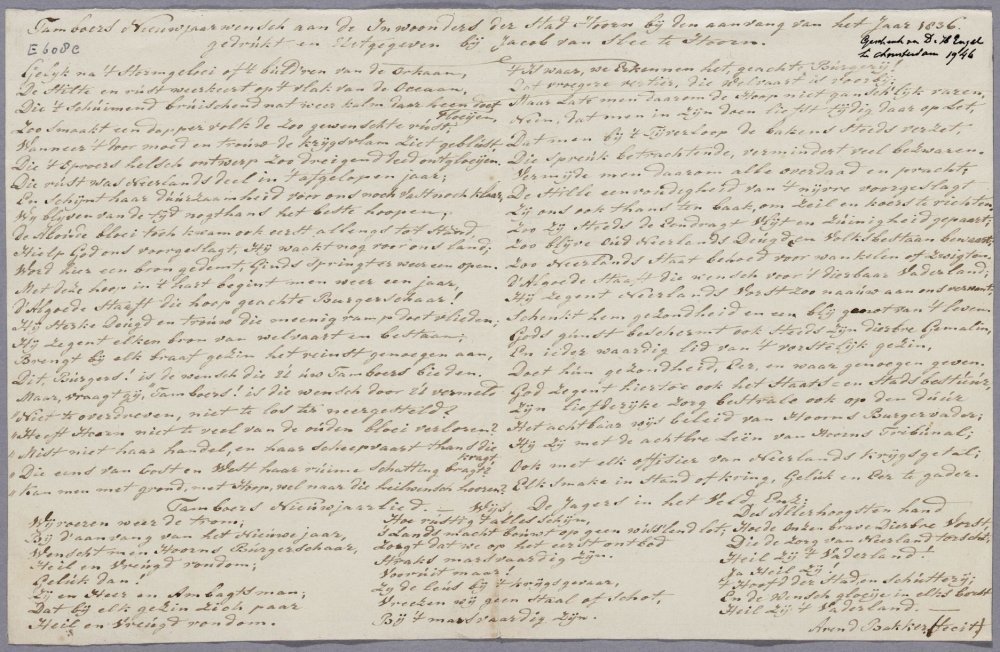 Tamboers Nieuwjaarwensch aan de Inwoonders der Stad Hoorn bij den aanvang van het Jaar 1836
gedrukt en Uitgegeven bij Jacob van Slee te Hoorn.
E 608c
Geschenk van D. Engel
te Amsterdam 1946
Gelyk na 't Stormgeloei of 't buld'ren van de Orkaan,
De Stilte en rust weerkeert op 't vlak van de Oceaan,
Die 't Schuimend bruischend nat weer kalm daar heen doet
vloeijen,
Zoo Smaakt een dapper volk de zoo gewenschte rust,
Wanneer 't door moed en trouw de krygsvlam Ziet geblust,
Die 't Oproers helsch ontwerp Zoo dreigend deed ontgloeijen.
Die rust was Neerlands deel in 't afgelopen jaar;
En Schynt haar duurzaamheid voor ons noch vast noch klaar,
Wy blyven van de tyd nogthans het beste hoopen,
De Aloude bloei toch kwam ook eerst allengs tot Stand
Hielp God ons voorgeslagt, Hy waakt nog voor ons land;
Word hier een bron gedemt, Ginds springt er weer een open.
Met deze hoop in 't hart begint men weer een jaar,
d'Algoede Staaft die hoop geachte Burgerschaar!
Hy Sterke Deugd en trouw die meenig ramp doet vlieden;
Hy Zegent elken bron van welvaart en bestaan;
Brengt by elk braaf gezin het reinst genoegen aan,
Dit, Burgers! is de wensch die U uw Tamboers bieden.
Maar, vraagt gy, Tamboers! is die wensch door U vermeld
Niet te overdreven, niet te los ter neergesteld?
Heeft Hoorn niet te veel van de ouden bloei verloren?
Mist niet haar handel, en haar scheepvaart thans die
kragt?
Die eens van Oost en West haar ruime Schatting bragt?
Kan men met grond, met Hoop, wel naar die heilwensch hooren?
't Is waar, we Erkennen het, geachte Burgerij!
Dat vroegere vertier, die Welvaart is voorbij;
Maar Laat men daarom de Hoop niet gansch'lijk varen,
Neen, dat men in Zijn doen liefst tijdig daar op Let,
Dat men bij 't Tijverloop de bakens Steeds verzet,
Die spreuk betrachtende, vermindert veel bezwaren.
Vermijde men daarom alle overdaad en pracht,
De Stille eenvoudigheid van 't nijvre voorgeslagt
Zij ons ook thans ten baak, om Zeil en koers te richten,
Zoo Zij Steeds de Eendragt Vlijt en Zuinigheid gepaart,
Zoo blijve Oud Neerlands Deugd en Volksbestaan bewaart,
Zoo Neerlands Staat behoed voor wankelen of Zwigten.
d'Algoede Staaft die wensch voor 't dierbaar Vaderland,
Hij Zegent Neerlands Vorst Zoo naauw aan ons verwant,
Schenkt hem gezondheid en een blij genot van 't leven
Gods gunst beschermt ook Steeds Zijn dierbre Gemalin,
En ieder waardig lid van 't vorstelijk gezin,
Doet hun gezondheid, Eer, en waar genoegen geven.
God Zegent hiertoe ook het Staats en Stadsbestuur,
Zijn liefderijke Zorg bestrale ook op den duur
Het achtbaar wijs beleid van Hoorns Burgervader;
Hij Zij met de achtbre Leên van Hoorns Tribunal;
Ook met elk officier van Neerlands krijgsgetal;
Elk Smake in Stand of kring, Geluk en Eer te gader.
Tamboers Nieuwjaarlied. — Wijs, De Jagers in het Veld Enz:
Wy roeren weer de trom;
By d'aanvang van het Nieuwe jaar,
Wenscht men Hoorns Burgerschaar,
Heil en Vreugd rondom;
Geluk dan!
Zy en Heer en Ambagtsman;
Dat by elk gezin Zich paar
Heil en Vreugd rondom.
Hoe rustig t alles Schijn,
S Lands macht bouwt op geen wufflend lot;
Zorgt dat we op het eerst ontbod
Straks marsvaardig Zijn.
Vooruit maar!
Zy de leus by 't krygsgevaar,
Vreezen wy geen Staal of Schot,
Bij 't marsvaardig Zijn.
Des Allerhoogsten hand
Hoede Onzen brave Dierbre Vorst,
Die de Zorg van Neerland torscht;
Heil Zij 't Vaderland!
Ja Heil Zij!
't Hoofd der Stad en Schutterij;
En de Wensch gloeije in elks borst
Heil Zij 't Vaderland. —
Arend Bakker (fecit)